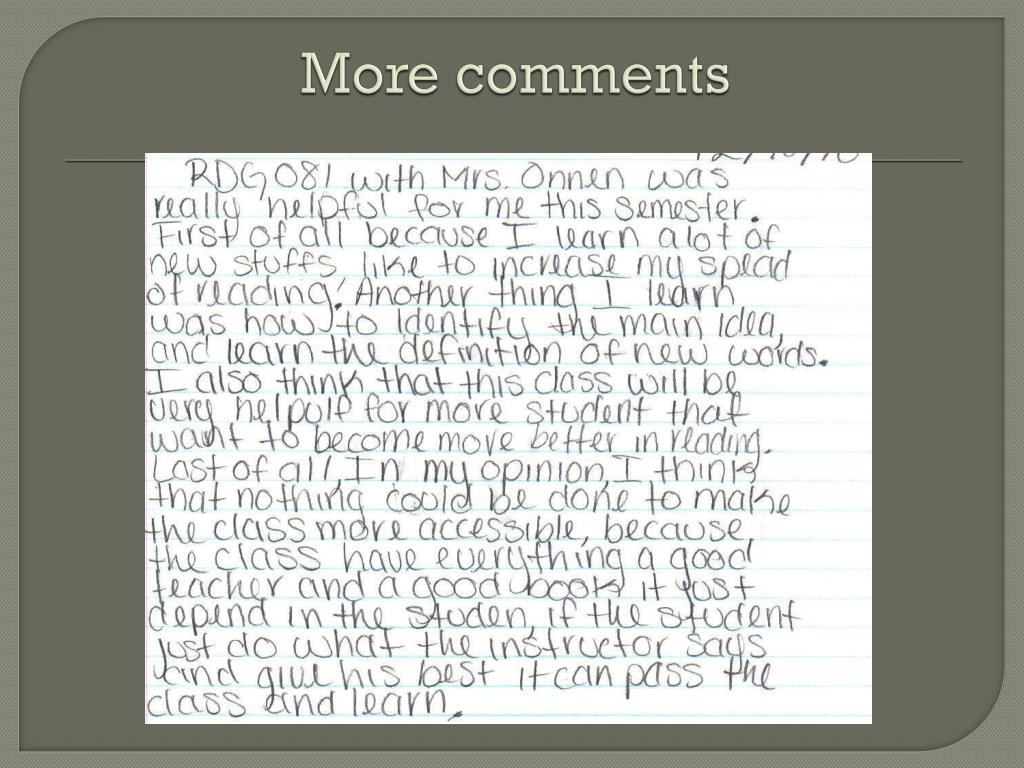 More comments
RDG 081 with Mrs. Onnen was
really helpful for me this semester.
First of all because I learn a lot of
new stuffs like to increase my spead
of reading. Another thing I learn
was how to identify the main idea,
and learn the definition of new words.
I also think that this class will be
very helpulf for more student that
want to become more better in reading.
Last of all, In my opinion, I think
that nothing could be done to make
the class more accessible, because
the class have everything a good
teacher and a good book, it just
depend in the studen, if the student
just do what the instructor says
and give his best it can pass the
class and learn.